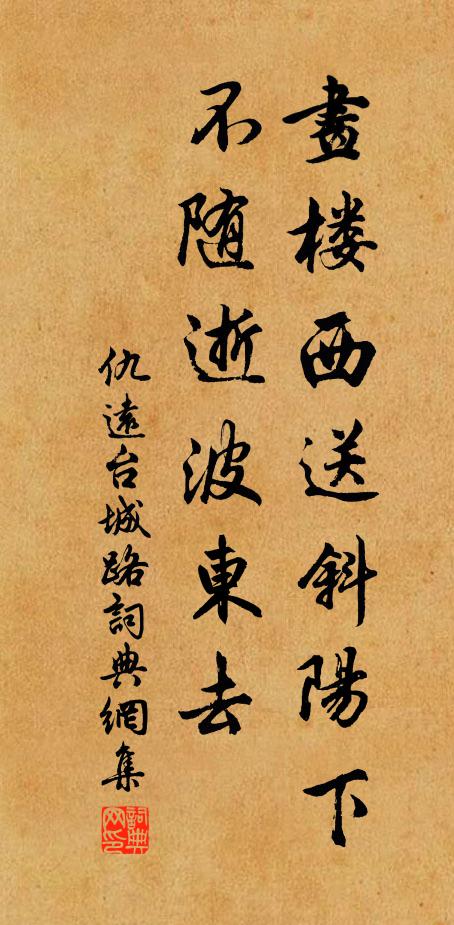 畫楼西送斜陽下
不随逝波東去
仇遠台城路詞典網集
詞典网印